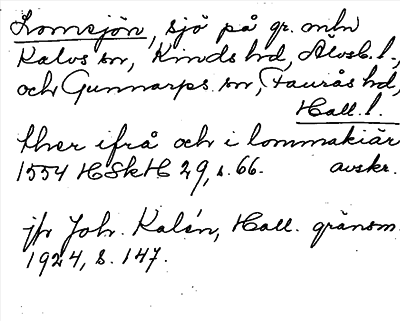 Lomsjön, sjö på gr. mln
Kalvs sn, Kinds hd, Älvsb. l.,
och Gunnarps sn, Faurås hd,
Hall. l.
ther ifrå och i lommakiär
1554 HSkH 29, s. 66. avskr.
jfr Joh. Kalén, Hall. gränsm.
1924, s. 147.